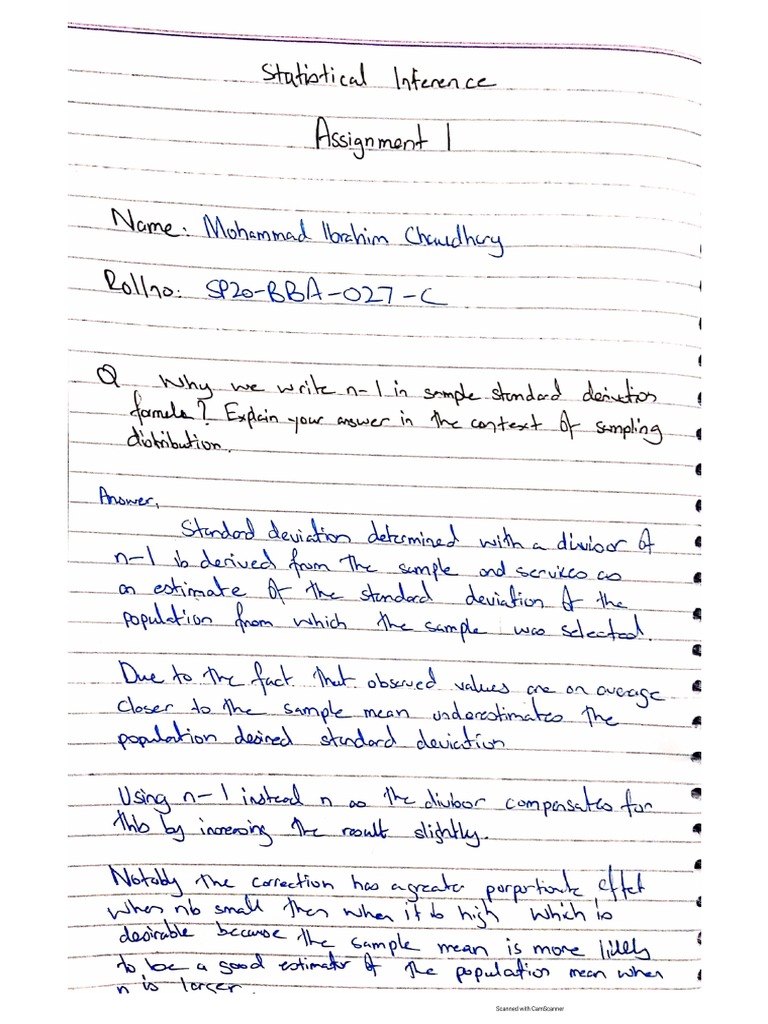 Statistical Inference
Assignment 1
Name: Mohammad Ibrahim Chawdhary
Rollno: SP20-BBA-027-C
Q Why we write n-1 in sample standard deviation
formula? Explain your answer in the context of sampling
distribution.
Answer,
Standard deviation determined with a divisor of
n-1 is derived from the sample and services as
an estimate of the standard deviation of the
population from which the sample was selected.
Due to the fact that observed values are on average
closer to the sample mean underestimates the
population desired standard deviation
Using n-1 instead n as the divisor compensates for
this by increasing the result slightly.
Notably the correction has a greater porportionate effet
when n is small then when it is high which is
desirable because the sample mean is more likely
to be a good estimator of the population mean when
n is larger.
Scanned with CamScanner